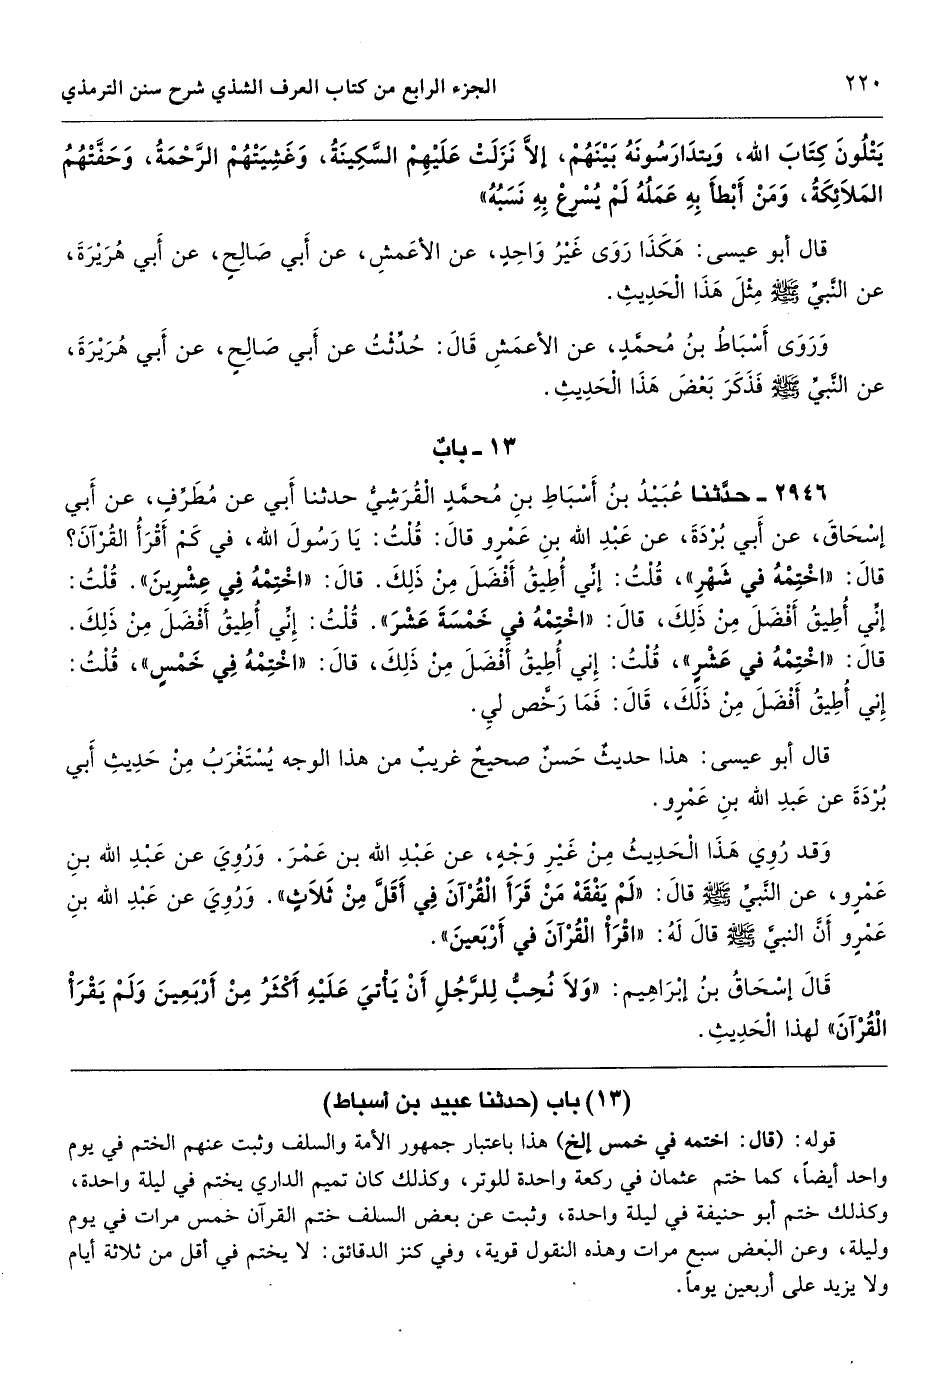 ٢٢٠
الجزء الرابع من كتاب العرف الشذي شرح سنن الترمذي
يَتْلُونَ كِتَابَ الله، وَيتدَارَسُونَهُ بَيْنَهُمْ، إلاَّ نَزَلَتْ عَلَيْهِمْ السَّكِينَةُ، وَغَشِيَتْهُمْ الرَّحْمَةُ، وَحَفَّتْهُمُ
المَلاَئِكَةُ، وَمَنْ أَبْطأَ بِهِ عَمَلُهُ لَمْ يُسْرِعْ بِهِ نَسَبُهُ»
قال أبو عيسى: هَكَذَا رَوَى غَيْرُ وَاحِدٍ، عن الأعَمشِ، عن أَبي صَالِحٍ، عن أبي هُرَيْرَةَ،
عن النَّبيِّ ﷺ مِثْلَ هَذَا الْحَدِيثِ.
وَرَوَى أَسْبَاطُ بنُ مُحمَّدٍ، عن الأعمَشِ قَالَ: حُدِّثْتُ عن أَبي صَالِحٍ، عن أَبي هُرَيْرَةَ،
عن النَّبيِّ ﷺ فَذَكَرَ بَعْضَ هَذَا الْحَدِيثِ.
١٣ - بابٌ
٢٩٤٦ - حدَّثنا عُبَيْدُ بنُ أَسْبَاطِ بنِ مُحمَّدٍ الْقُرَشِيُّ حدثنا أَبي عن مُطَرِّفٍ، عن أَبي
إسْحَاقَ، عن أَبي بُرْدَةَ، عن عَبْدِ الله بنِ عَمْرٍو قالَ: قُلْتُ: يَا رَسُولَ الله، في كَمْ أَقْرَأُ القُرْآنَ؟
قالَ: «اخْتِمْهُ في شَهْرٍ»، قُلْتُ: إنِّي أُطِيقُ أَفْضَلَ مِنْ ذَلِكَ. قالَ: «اخْتِمْهُ فِي عِشْرِينَ». قُلْتُ:
إنِّي أُطِيقُ أَفْضَلَ مِنْ ذَلِكَ، قالَ: «اخْتِمْهُ في خَمْسَةَ عَشْرَ». قُلْتُ: إنِّي أُطِيقُ أَفْضَلَ مِنْ ذَلِكَ.
قالَ: «اخْتِمْهُ في عَشْرٍ»، قُلْتُ: إني أُطِيقُ أَفْضَلَ مِنْ ذَلِكَ، قالَ: «اخْتِمْهُ في خَمْسٍ»، قُلْتُ:
إني أُطِيقُ أَفْضَلَ مِنْ ذَلَكَ، قَالَ: فَمَا رَخَّص لي.
قال أبو عيسى: هذا حديثٌ حَسنٌ صحيحٌ غريبٌ من هذا الوجه يُسْتَغْرَبُ مِنْ حَدِيثِ أَبي
بُرْدَةَ عن عَبدِ الله بنِ عَمْرٍو.
وَقد رُوِي هَذَا الْحَدِيثُ مِنْ غَيْرِ وَجْهٍ، عن عَبْدِ الله بن عَمْرَ. وَرُوِيَ عن عَبْدِ الله بنِ
عَمْرٍو، عن النَّبيِّ ﷺ قالَ: «لَمْ يَفْقَهْ مَنْ قَرَأَ الْقُرْآنَ فِي أَقَلَّ مِنْ ثَلاَثٍ». وَرُوِيَ عن عَبْدِ الله بنِ
عَمْرٍو أَنَّ النبيَّ ﷺ قالَ لَهُ: «اقْرَأْ الْقُرْآنَ في أَرْبَعينَ».
قَالَ إسْحَاقُ بنُ إبْرَاهِيم: «وَلاَ نُحِبُّ لِلرَّجُلِ أَنْ يَأتيَ عَلَيْهِ أَكْثَرُ مِنْ أَرْبَعِينَ وَلَمْ يَقْرَأ
الْقُرْآنَ» لهذا الْحَدِيثِ.
(١٣) باب (حدثنا عبيد بن أسباط)
قوله: (قال: اختمه في خمس إلخ) هذا باعتبار جمهور الأمة والسلف وثبت عنهم الختم في يوم
واحد أيضاً، كما ختم عثمان في ركعة واحدة للوتر، وكذلك كان تميم الداري يختم في ليلة واحدة،
وكذلك ختم أبو حنيفة في ليلة واحدة، وثبت عن بعض السلف ختم القرآن خمس مرات في يوم
وليلة، وعن البعض سبع مرات وهذه النقول قوية، وفي كنز الدقائق: لا يختم في أقل من ثلاثة أيام
ولا يزيد على أربعين يوماً.